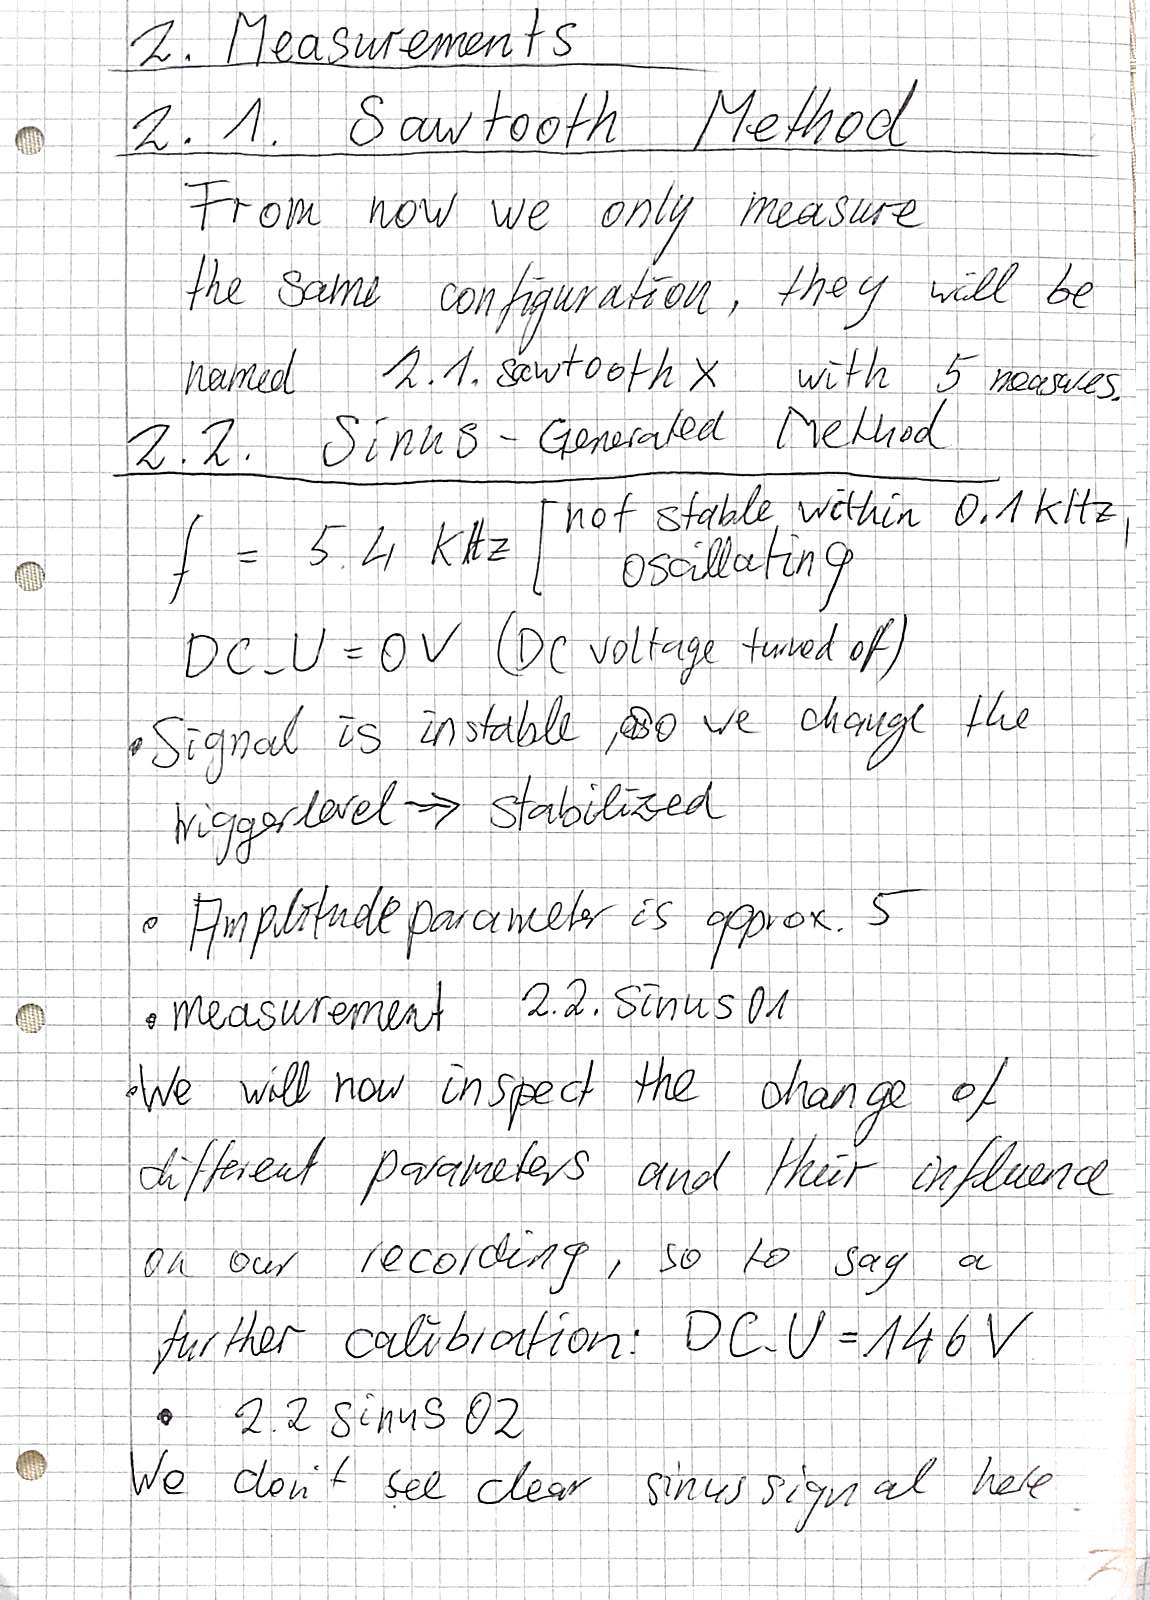 2. Measurements
2.1. Sawtooth Method
From now we only measure
the same configuration, they will be
named 2.1.sawtooth X with 5 measures.
2.2. Sinus-Generated Method
f = 5.4 KHz [not stable within 0.1 kHz,
oscillating
DC_U = 0V (DC voltage turned off)
• Signal is instable, so we change the
triggerlevel → stabilized
• Amplitudeparameter is approx. 5
• measurement 2.2.Sinus01
• We will now inspect the change of
different parameters and their influence
on our recording, so to say a
further calibration: DC_U = 146V
• 2.2 sinus 02
We don't see clear sinussignal here